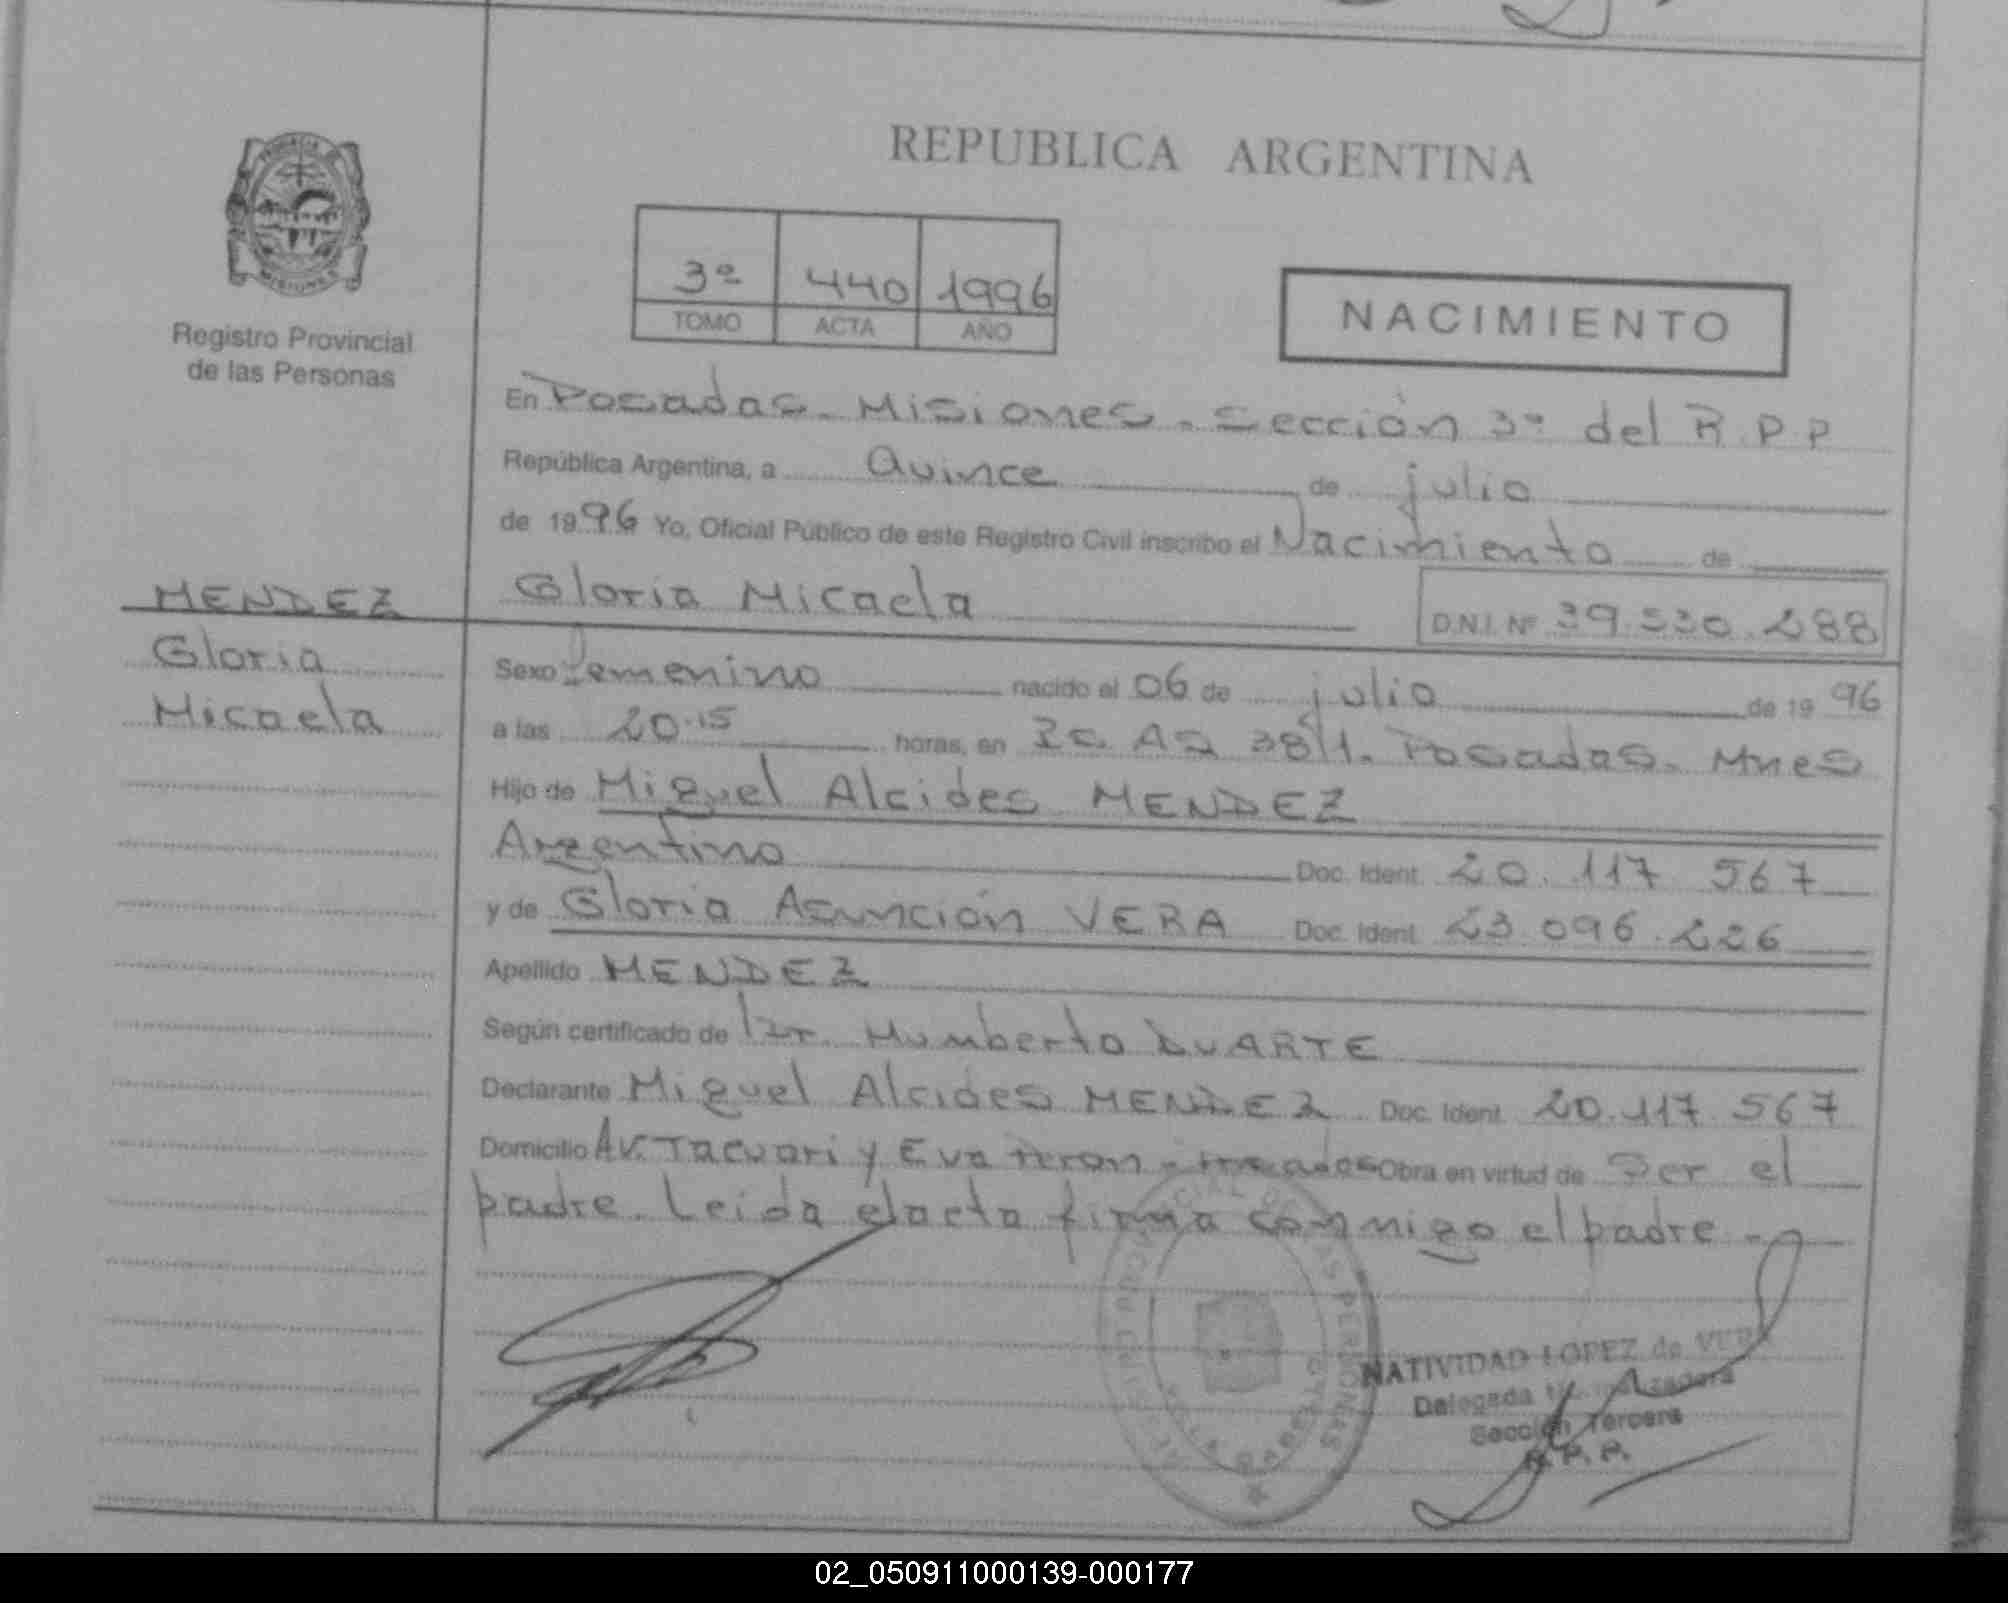 REPUBLICA ARGENTINA
3º 440 1996
TOMO ACTA AÑO
NACIMIENTO
MISIONES
Registro Provincial
de las Personas
En Posadas. Misiones. Sección 3º del R.P.P
República Argentina, a Quince de julio
de 1996 Yo, Oficial Público de este Registro Civil inscribo el Nacimiento de
Gloria Micaela D.N.I. Nº 39.530.288
MENDEZ
Gloria
Micaela
Sexo femenino nacido el 06 de julio de 1996
a las 20.15 horas, en Posadas. Mnes
Hijo de Miguel Alcides MENDEZ
Argentino Doc. Ident. 20.117 567
y de Gloria Asunción VERA Doc. Ident. 23.096.226
Apellido MENDEZ
Según certificado de Dr. Humberto DUARTE
Declarante Miguel Alcides MENDEZ Doc. Ident. 20.117.567
Domicilio Av. Tacuari y Eva Peron - Posadas Obra en virtud de Ser el
padre. Leida el acta firma conmigo el padre.-
NATIVIDAD LOPEZ de VERA
Delegada
Sección Tercera
R.P.P.
02_050911000139-000177